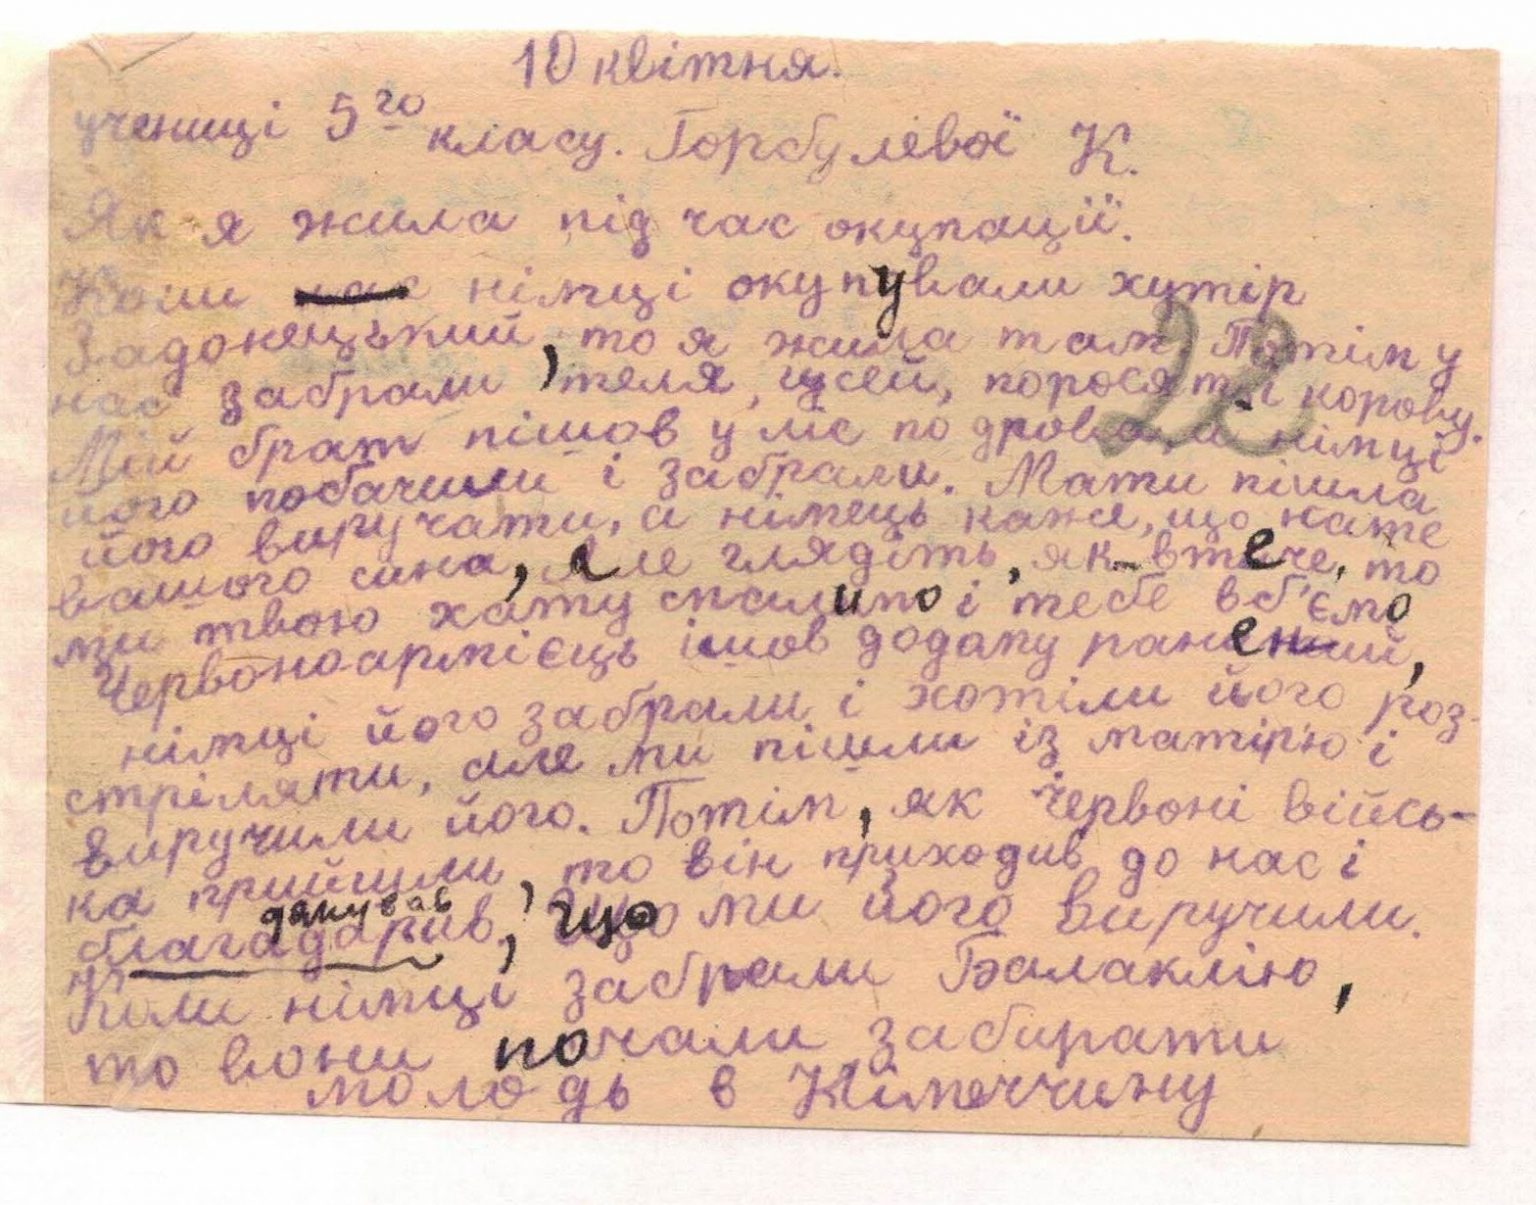 10 квітня.
учениці 5го класу. Горбулевої К.
Як я жила під час окупації.
Коли нас німці окупували хутір
Задонецький, то я жила там Потім у
нас забрали, теля, гусей, поросят і корову.
Мій брат пішов у ліс по дрова і німці
його побачили і забрали. Мати пішла
його виручати, а німець каже, що нате
вашого сина, але глядіть, як втече, то
ми твою хату спалимо і тебе вб'ємо
Червоноармієць ішов додому ранений,
німці його забрали і хотіли його роз-
стріляти, але ми пішли із матір'ю і
виручили його. Потім, як Червоні війсь-
ка прийшли, то він приходив до нас і
дякував
благадарив, що ми його виручили.
Коли німці забрали Балаклію,
то вони почали забирати
молодь в Німеччину
28